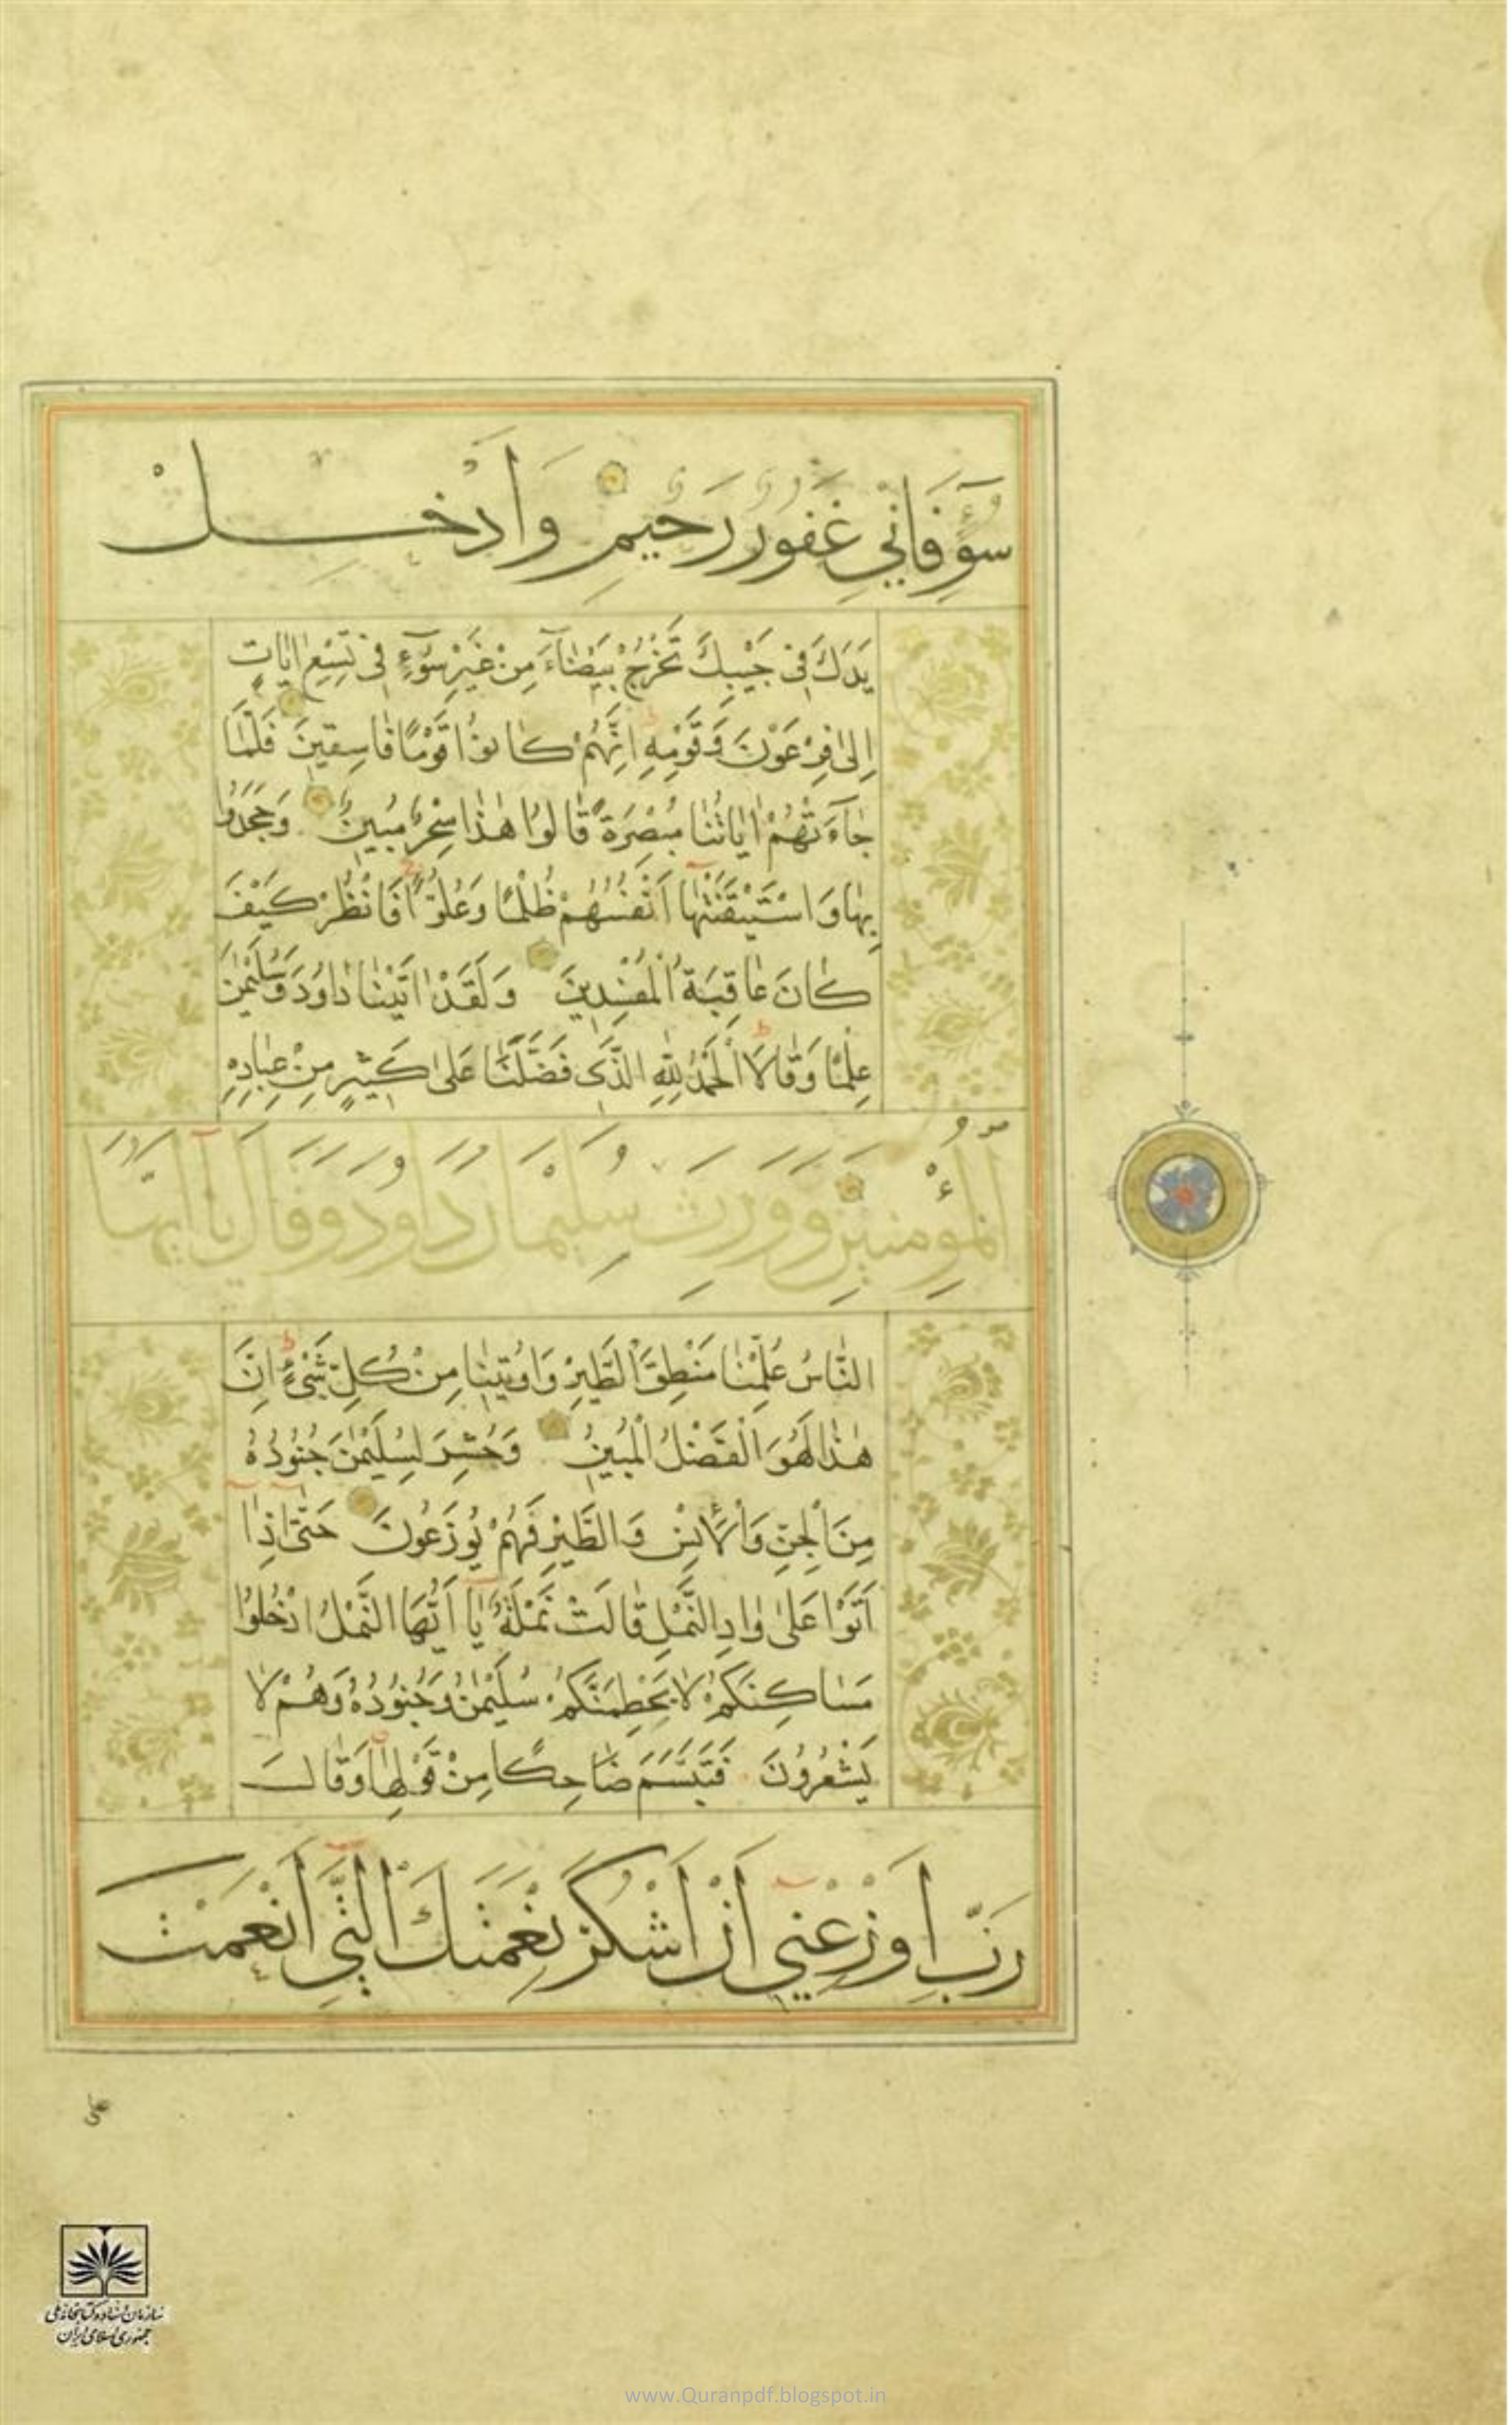 سُوٓءٍ فَاِنّي غَفُورٌ رَحيمٌ وَاَدْخِلْ
يَدَكَ في جَيْبِكَ تَخْرُجْ بَيْضٰٓاءَ مِنْ غَيْرِ سُوٓءٍ في تِسْعِ اٰيٰاتٍ
اِلىٰ فِرْعَوْنَ وَقَوْمِهِ اِنَّهُمْ كٰانوُا قَوْمًا فٰاسِقينَ فَلَمّٰا
جٰٓاءَتْهُمْ اٰيٰاتُنٰا مُبْصِرَةً قٰالوُا هٰذٰا سِحْرٌ مُبينٌ وَجَحَدوُا
بِهٰا وَاسْتَيْقَنَتْهٰا اَنْفُسُهُمْ ظُلْمًا وَعُلُوًّا فَانْظُرْ كَيْفَ
كٰانَ عٰاقِبَةُ الْمُفْسِدينَ وَلَقَدْ اٰتَيْنٰا دٰاوُدَ وَسُلَيْمٰنَ
عِلْمًا وَقٰالَا الْحَمْدُ لِلّٰهِ الَّذي فَضَّلَنٰا عَلىٰ كَثيرٍ مِنْ عِبٰادِهِ
الْمُؤْمِنينَ وَوَرِثَ سُلَيْمٰانُ دٰاوُدَ وَقٰالَ يٰٓا اَيُّهَا
النّٰاسُ عُلِّمْنٰا مَنْطِقَ الطَّيْرِ وَاوُتينٰا مِنْ كُلِّ شَيْءٍ اِنَّ
هٰذٰا لَهُوَ الْفَضْلُ الْمُبينُ وَحُشِرَ لِسُلَيْمٰنَ جُنوُدُهُ
مِنَ الْجِنِّ وَالْاِنْسِ وَالطَّيْرِ فَهُمْ يوُزَعوُنَ حَتّٰىٓ اِذٰٓا
اَتَوْا عَلىٰ وٰادِ النَّمْلِ قٰالَتْ نَمْلَةٌ يٰٓا اَيُّهَا النَّمْلُ ادْخُلوُا
مَسٰاكِنَكُمْ لٰا يَحْطِمَنَّكُمْ سُلَيْمٰنُ وَجُنوُدُهُ وَهُمْ لٰا
يَشْعُروُنَ فَتَبَسَّمَ ضٰاحِكًا مِنْ قَوْلِهٰا وَقٰالَ
رَبِّ اَوْزِعْنيٓ اَنْ اَشْكُرَ نِعْمَتَكَ الَّتيٓ اَنْعَمْتَ
على
سازمان اسناد و کتابخانه ملی
جمهوری اسلامی ایران
www.Quranpdf.blogspot.in